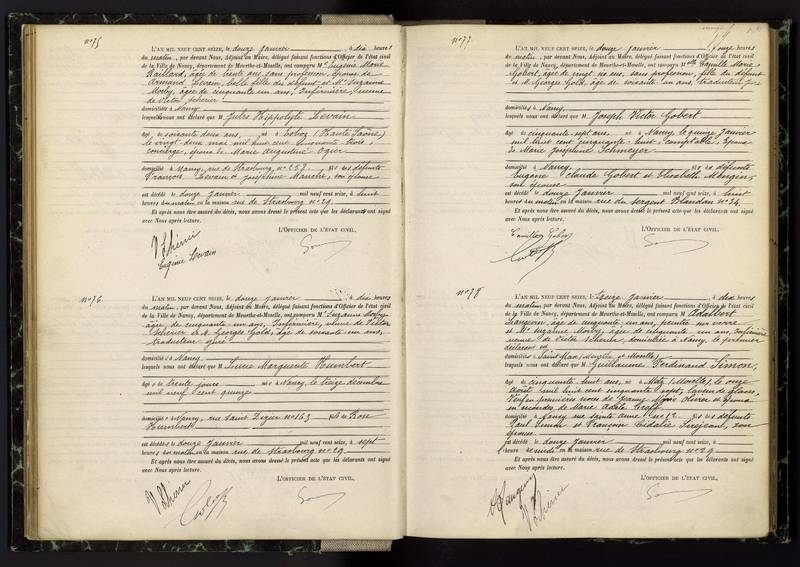 n°75
L'AN MIL NEUF CENT SEIZE, le douze janvier, à dix heures
du matin, par devant Nous, Adjoint au Maire, délégué faisant fonctions d'Officier de l'état civil
de la Ville de Nancy, département de Meurthe-et-Moselle, ont comparu M Eugénie Marie
âgée de trente ans, sans profession, épouse de
Armand Levain, belle fille du défunt et Mme Suzanne
Morby, âgée de cinquante un ans, Infirmière, veuve
de Victor Scherier
domiciliés à Nancy
lesquels nous ont déclaré que M Jules Hippolyte Levain
âgé de soixante deux ans, né à (Haute Saône)
le vingt deux mai mil huit cent cinquante trois,
concierge, époux de Marie Augustine Ogier
domicilié à Nancy, rue de Strasbourg, n° fils des défunts
François Levain et Joséphine son épouse
est décédé le douze janvier mil neuf cent seize, à huit
heures du matin en la maison rue de Strasbourg n° 29.
Et après nous être assuré du décès, nous avons dressé le présent acte que les déclarants ont signé
avec Nous après lecture.
L'OFFICIER DE L'ÉTAT CIVIL,
Eugénie Levain
n°76.
L'AN MIL NEUF CENT SEIZE, le douze janvier, à dix heures
du matin, par devant Nous, Adjoint au Maire, délégué faisant fonctions d'Officier de l'état civil
de la Ville de Nancy, département de Meurthe-et-Moselle, ont comparu Mme Suzanne Morby
âgée de cinquante un ans, Infirmière, veuve de Victor
Scherier et M. Georges Gold, âgé de soixante un ans,
traducteur juré
domiciliés à Nancy
lesquels nous ont déclaré que M Lucie Marguerite Humbert
âgé e de trente jours née à Nancy, le treize décembre
mil neuf cent quinze
domiciliée à Nancy, rue Saint Dizier n° 163 fille de Rose
Humbert
est décédée le douze janvier mil neuf cent seize, à sept
heures du matin en la maison rue de Strasbourg n° 29
Et après nous être assuré du décès, nous avons dressé le présent acte que les déclarants ont signé
avec Nous après lecture.
L'OFFICIER DE L'ÉTAT CIVIL,
n°77.
L'AN MIL NEUF CENT SEIZE, le douze janvier, à onze heures
du matin, par devant Nous, Adjoint au Maire, délégué faisant fonctions d'Officier de l'état civil
de la Ville de Nancy, département de Meurthe-et-Moselle, ont comparu Mlle Camille Marie
Gobert, âgée de vingt six ans, sans profession, fille du défunt
et M. Georges Gold, âgé de soixante un ans, traducteur juré
domiciliés à Nancy
lesquels nous ont déclaré que M Joseph Victor Gobert
âgé de cinquante sept ans, né à Nancy, le quinze janvier
mil huit cent cinquante huit, comptable, époux
de Marie Joséphine Schmeyer
domicilié à Nancy fils des défunts
Eugène Claude Gobert et Elisabeth Mengin,
son épouse
est décédé le douze janvier mil neuf cent seize, à huit
heures du matin en la maison rue du Sergent Blandan n° 34.
Et après nous être assuré du décès, nous avons dressé le présent acte que les déclarants ont signé
avec Nous après lecture.
L'OFFICIER DE L'ÉTAT CIVIL,
Camille Gobert
n°78
L'AN MIL NEUF CENT SEIZE, le treize janvier, à dix heures
du matin, par devant Nous, Adjoint au Maire, délégué faisant fonctions d'Officier de l'état civil
de la Ville de Nancy, département de Meurthe-et-Moselle, ont comparu M Adalbert
âgé de cinquante cinq ans, peintre sur verre
et Mme Suzanne Morby, âgée de cinquante un ans, Infirmière
veuve de Victor Scherier, domiciliée à Nancy, le premier
déclarant est
domiciliés à Saint Max (Meurthe et Moselle)
lesquels nous ont déclaré que M Guillaume Ferdinand Simon,
âgé de cinquante huit ans, né à Metz (Moselle), le onze
août mil huit cent cinquante sept, laveur de glaces,
veuf en premières noces de Olivier et époux
en secondes de Marie Adèle
domicilié à Nancy, rue Sainte Anne n° 12 fils des défunts
Paul Simon et Françoise son
épouse
est décédé le douze janvier mil neuf cent seize, à
heures du en la maison rue de Strasbourg n° 29
Et après nous être assuré du décès, nous avons dressé le présent acte que les déclarants ont signé
avec Nous après lecture.
L'OFFICIER DE L'ÉTAT CIVIL,